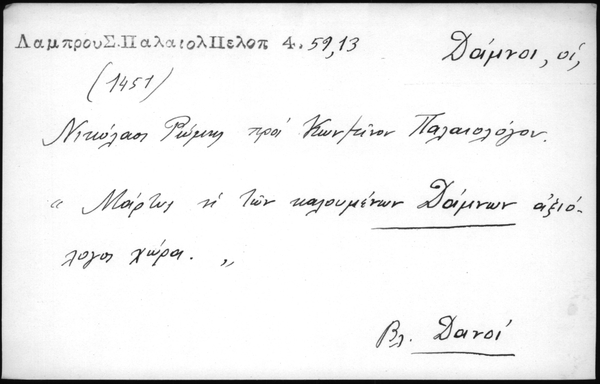 ΛαμπρουΣ.ΠαλαιολΠελοπ 4. 59,13
Δάμνοι, οἱ,
(1451)
Νικόλαος Ῥώμης πρὸς Κων/τῖνον Παλαιολόγον.
" Μάρτυς ἡ τῶν καλουμένων Δάμνων ἀξιό-
λογος χώρα. "
Βλ. Δανοί